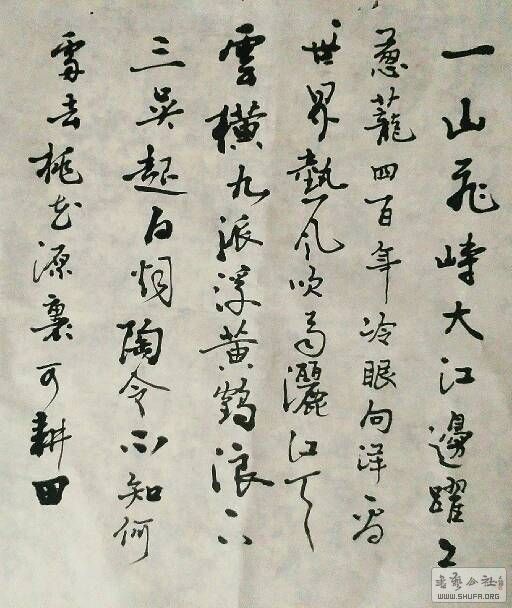 一山飛峙大江邊躍上
葱蘢四百年冷眼向洋看
世界熱風吹雨灑江天
雲橫九派浮黄鶴浪下
三吳起白烟陶令不知何
處去桃花源裏可耕田
WWW.SHUFA.ORG